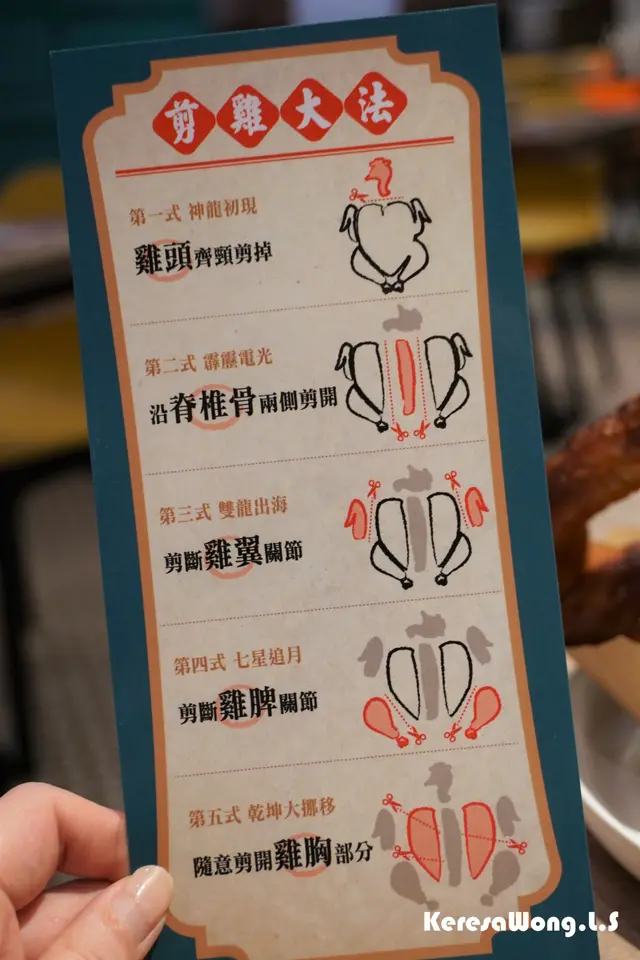 剪雞大法
第一式 神龍初現
雞頭齊頸剪掉
第二式 霹靂電光
沿脊椎骨兩側剪開
第三式 雙龍出海
剪斷雞翼關節
第四式 七星追月
剪斷雞脾關節
第五式 乾坤大挪移
隨意剪開雞胸部分
KeresaWong.L.S